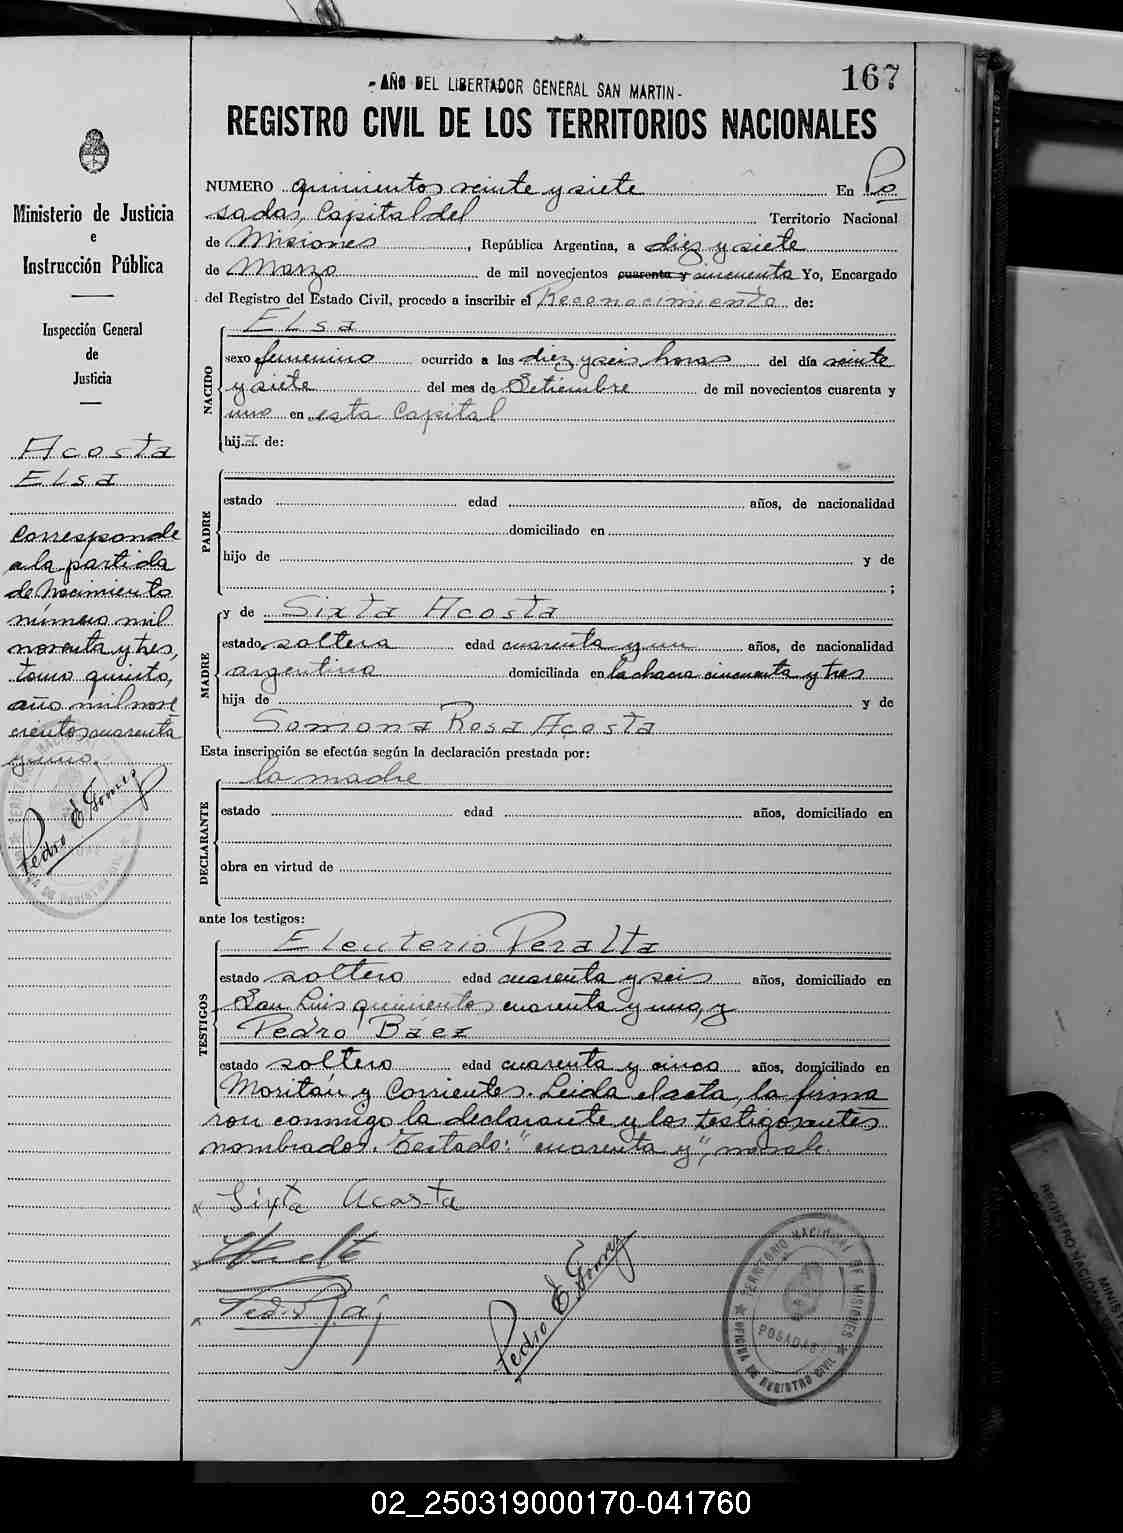 167
- AÑO DEL LIBERTADOR GENERAL SAN MARTIN -
REGISTRO CIVIL DE LOS TERRITORIOS NACIONALES
Ministerio de Justicia
e
Instrucción Pública
Inspección General
de
Justicia
Acosta
Elsa
Corresponde
a la partida
de Nacimiento
número mil
noventa y tres,
tomo quinto,
año mil nove
cientos cuarenta
y uno.
Pedro E. Gomez
NUMERO quinientos veinte y siete En Po
sadas, Capital del Territorio Nacional
de Misiones, República Argentina, a diez y siete
de Marzo de mil novecientos cuarenta y cincuenta Yo, Encargado
del Registro del Estado Civil, procedo a inscribir el Reconocimiento de:
NACIDO
Elsa
sexo femenino ocurrido a las diez y seis horas del día veinte
y siete del mes de Setiembre de mil novecientos cuarenta y
uno en esta Capital
hija de:
PADRE
estado edad años, de nacionalidad
domiciliado en
hijo de y de
;
MADRE
y de Sixta Acosta
estado soltera edad cuarenta y un años, de nacionalidad
argentina domiciliada en la chacra cincuenta y tres
hija de y de
Rosa Acosta
Esta inscripción se efectúa según la declaración prestada por:
DECLARANTE
la madre
estado edad años, domiciliado en
obra en virtud de
ante los testigos:
TESTIGOS
Eleuterio Peralta
estado soltero edad cuarenta y seis años, domiciliado en
San Luis quinientos cuarenta y uno, y
Pedro Báez
estado soltero edad cuarenta y cinco años, domiciliado en
y Corrientes. Leida el acta, la firma
ron conmigo la declarante y los testigos antes
nombrados. Testado: "cuarenta y", no vale.
Sixta Acosta
Pedro E. Gomez
TERRITORIO NACIONAL DE MISIONES
POSADAS
OFICINA DE REGISTRO CIVIL
02_250319000170-041760